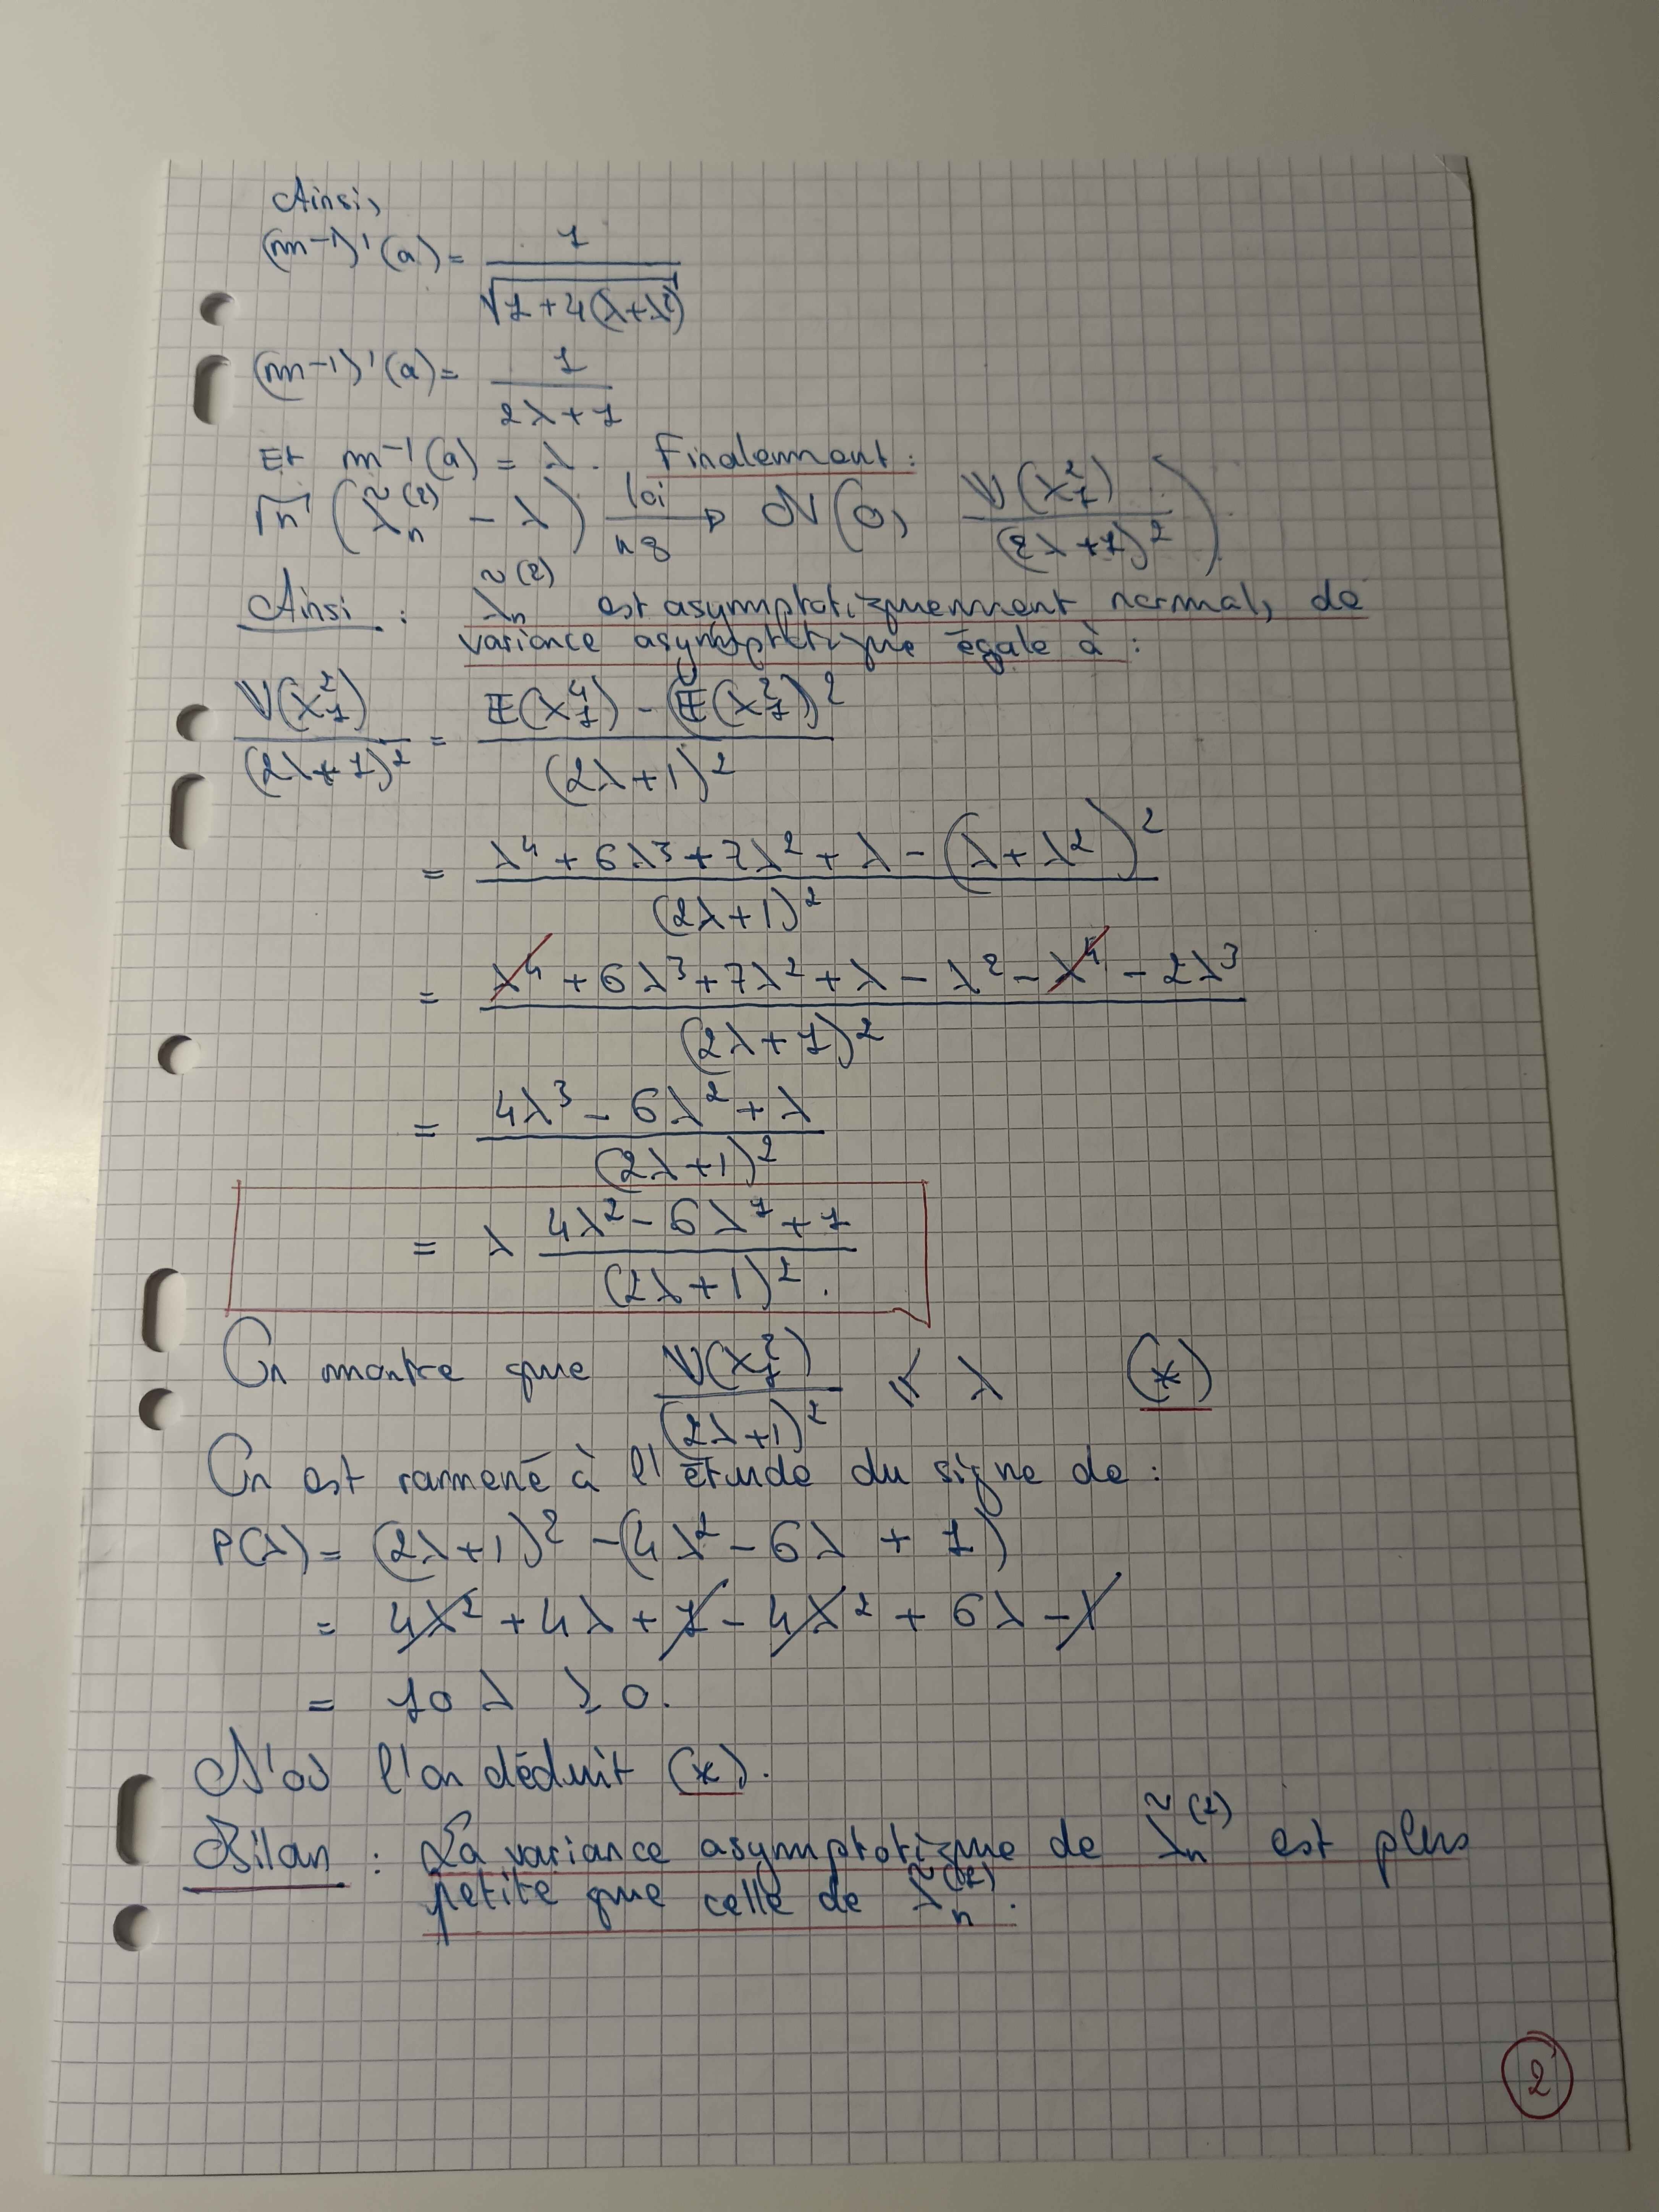 Ainsi,
(m⁻¹)'(a) = 1 / √(1 + 4(λ+λ²))
(m⁻¹)'(a) = 1 / (2λ+1)
Et m⁻¹(a) = λ. Finalement :
√n (λ̃ₙ⁽²⁾ − λ) —loi/n∞→ N(0, V(X₁²) / (2λ+1)²).
Ainsi : λ̃ₙ⁽²⁾ est asymptotiquement normal, de
variance asymptotique égale à :
V(X₁²) / (2λ+1)² = (E(X₁⁴) − (E(X₁²))²) / (2λ+1)²
= (λ⁴ + 6λ³ + 7λ² + λ − (λ+λ²)²) / (2λ+1)²
= (λ⁴ + 6λ³ + 7λ² + λ − λ² − λ⁴ − 2λ³) / (2λ+1)²
= (4λ³ − 6λ² + λ) / (2λ+1)²
= λ (4λ² − 6λ¹ + 1) / (2λ+1)².
On montre que V(X₁²) / (2λ+1)² ≤ λ (*)
On est ramené à l'étude du signe de :
P(λ) = (2λ+1)² − (4λ² − 6λ + 1)
= 4λ² + 4λ + 1 − 4λ² + 6λ − 1
= 10λ ≥ 0.
D'où l'on déduit (*).
Bilan : La variance asymptotique de λ̃ₙ⁽²⁾ est plus
petite que celle de λ̃ₙ⁽¹⁾.
2